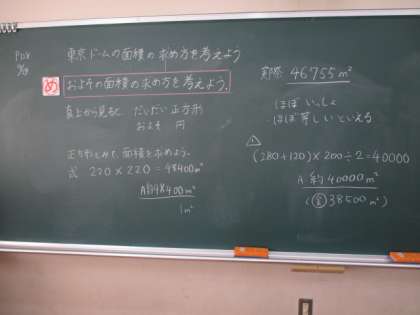 東京ドームの面積の求め方を考えよう
め およその面積の求め方を考えよう。
真上から見ると だいたい正方形
およそ 円
正方形とみて、面積を求めよう。
式 220×220=48400m²
A 約48400m²
1m²
実際 46755m²
ほぼいっしょ
ほぼ等しいといえる
(280+120)×200÷2=40000
A 約40000m²
38500m²